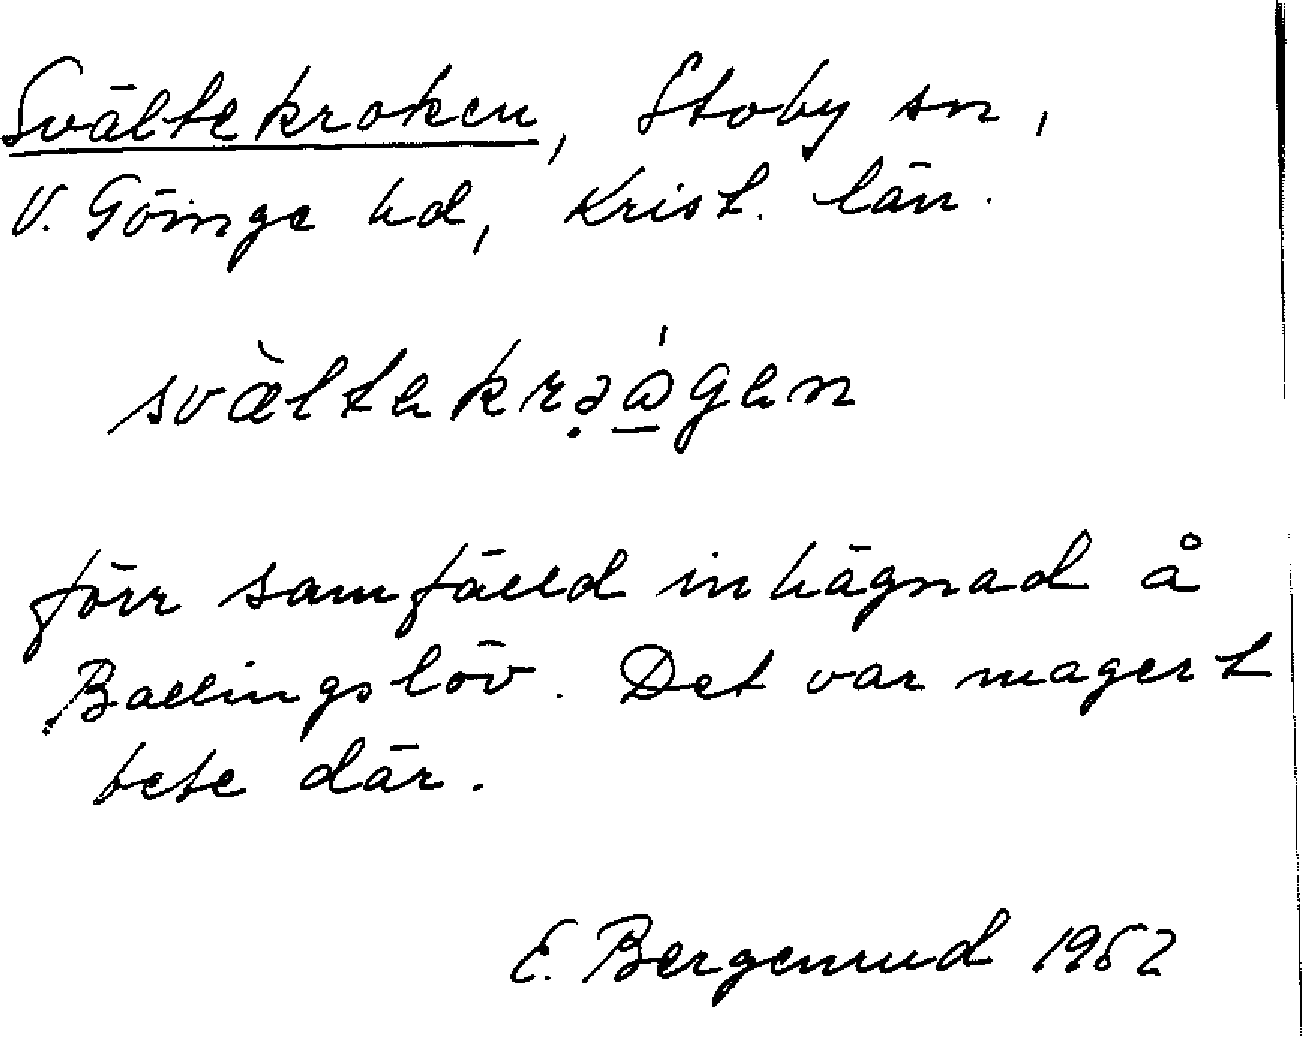 Svältekroken, Stoby sn,
V. Göinge hd, Krist. län.
svältekrəågen
förr samfälld inhägnad å
Ballingslöv. Det var magert
bete där.
E. Bergenrud 1962